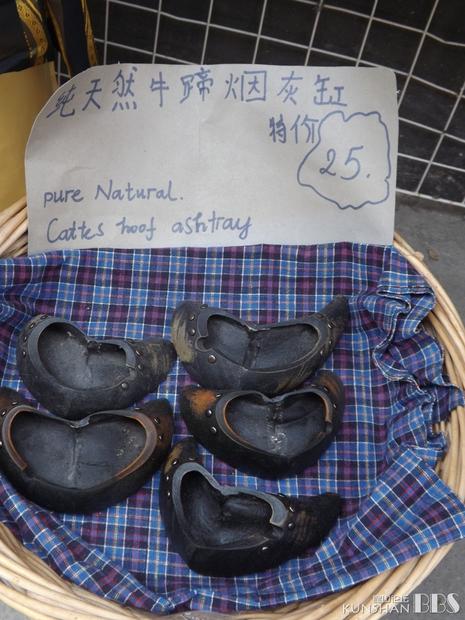 纯天然牛蹄烟灰缸
特价 25.
pure Natural.
Cattes hoof ashtray
KUNSHAN BBS